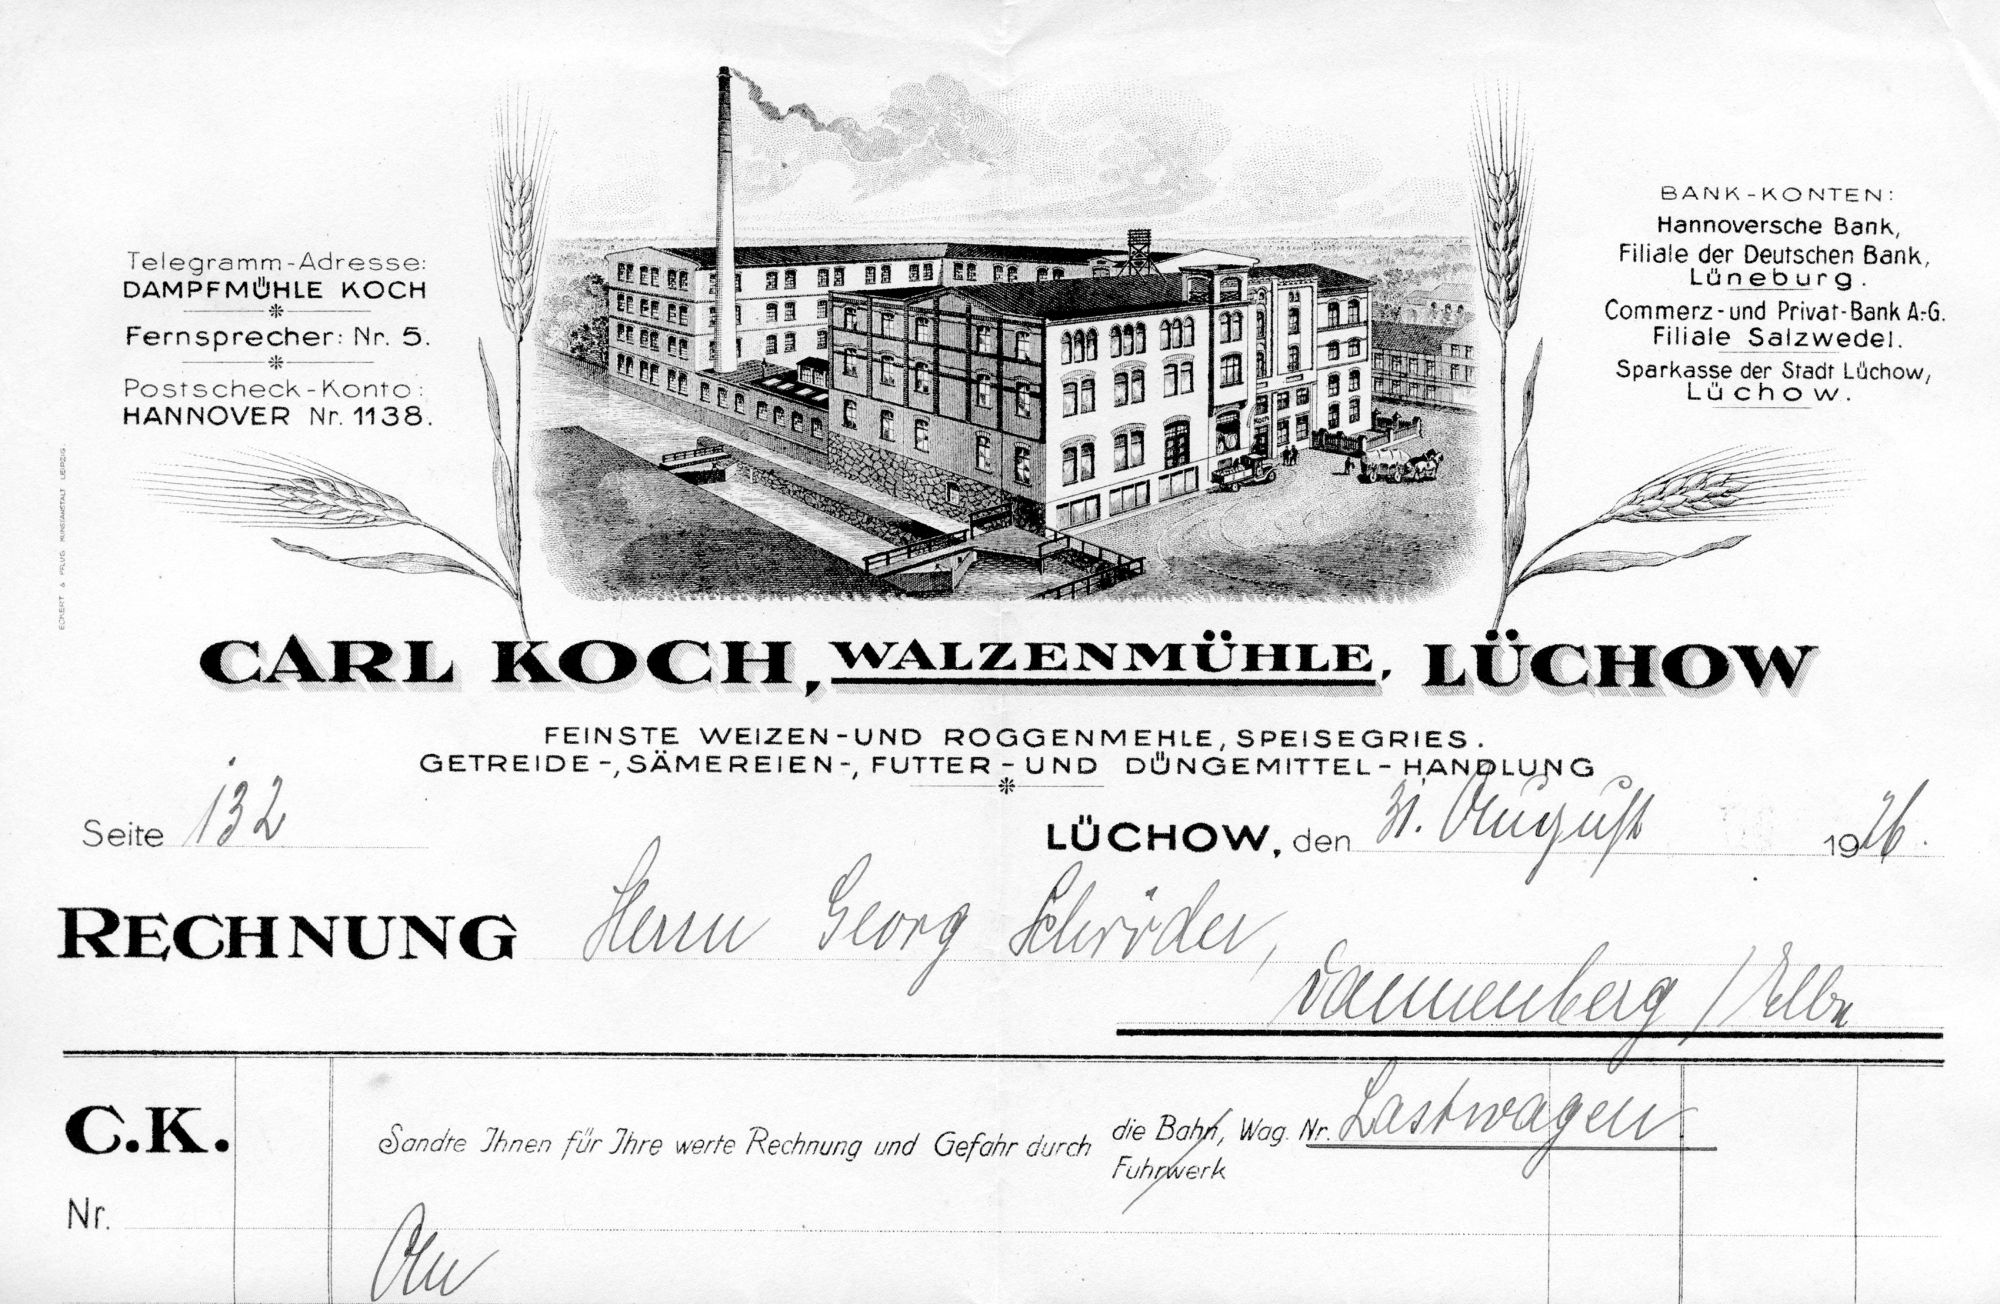 Telegramm-Adresse:
DAMPFMÜHLE KOCH
Fernsprecher: Nr. 5.
Postscheck-Konto:
HANNOVER Nr. 1138.
BANK-KONTEN:
Hannoversche Bank,
Filiale der Deutschen Bank,
Lüneburg.
Commerz- und Privat-Bank A.-G.
Filiale Salzwedel.
Sparkasse der Stadt Lüchow,
Lüchow.
ECKERT & PFLUG KUNSTANSTALT LEIPZIG
CARL KOCH, WALZENMÜHLE, LÜCHOW
FEINSTE WEIZEN- UND ROGGENMEHLE, SPEISEGRIES.
GETREIDE-, SÄMEREIEN-, FUTTER- UND DÜNGEMITTEL-HANDLUNG
Seite 132
LÜCHOW, den 31. August 1926.
RECHNUNG Herrn Georg Schröder,
Dannenberg / Elbe
C.K.
Sandte Ihnen für Ihre werte Rechnung und Gefahr durch die Bahn, Wag. Nr. Lastwagen
Fuhrwerk
Nr.
An